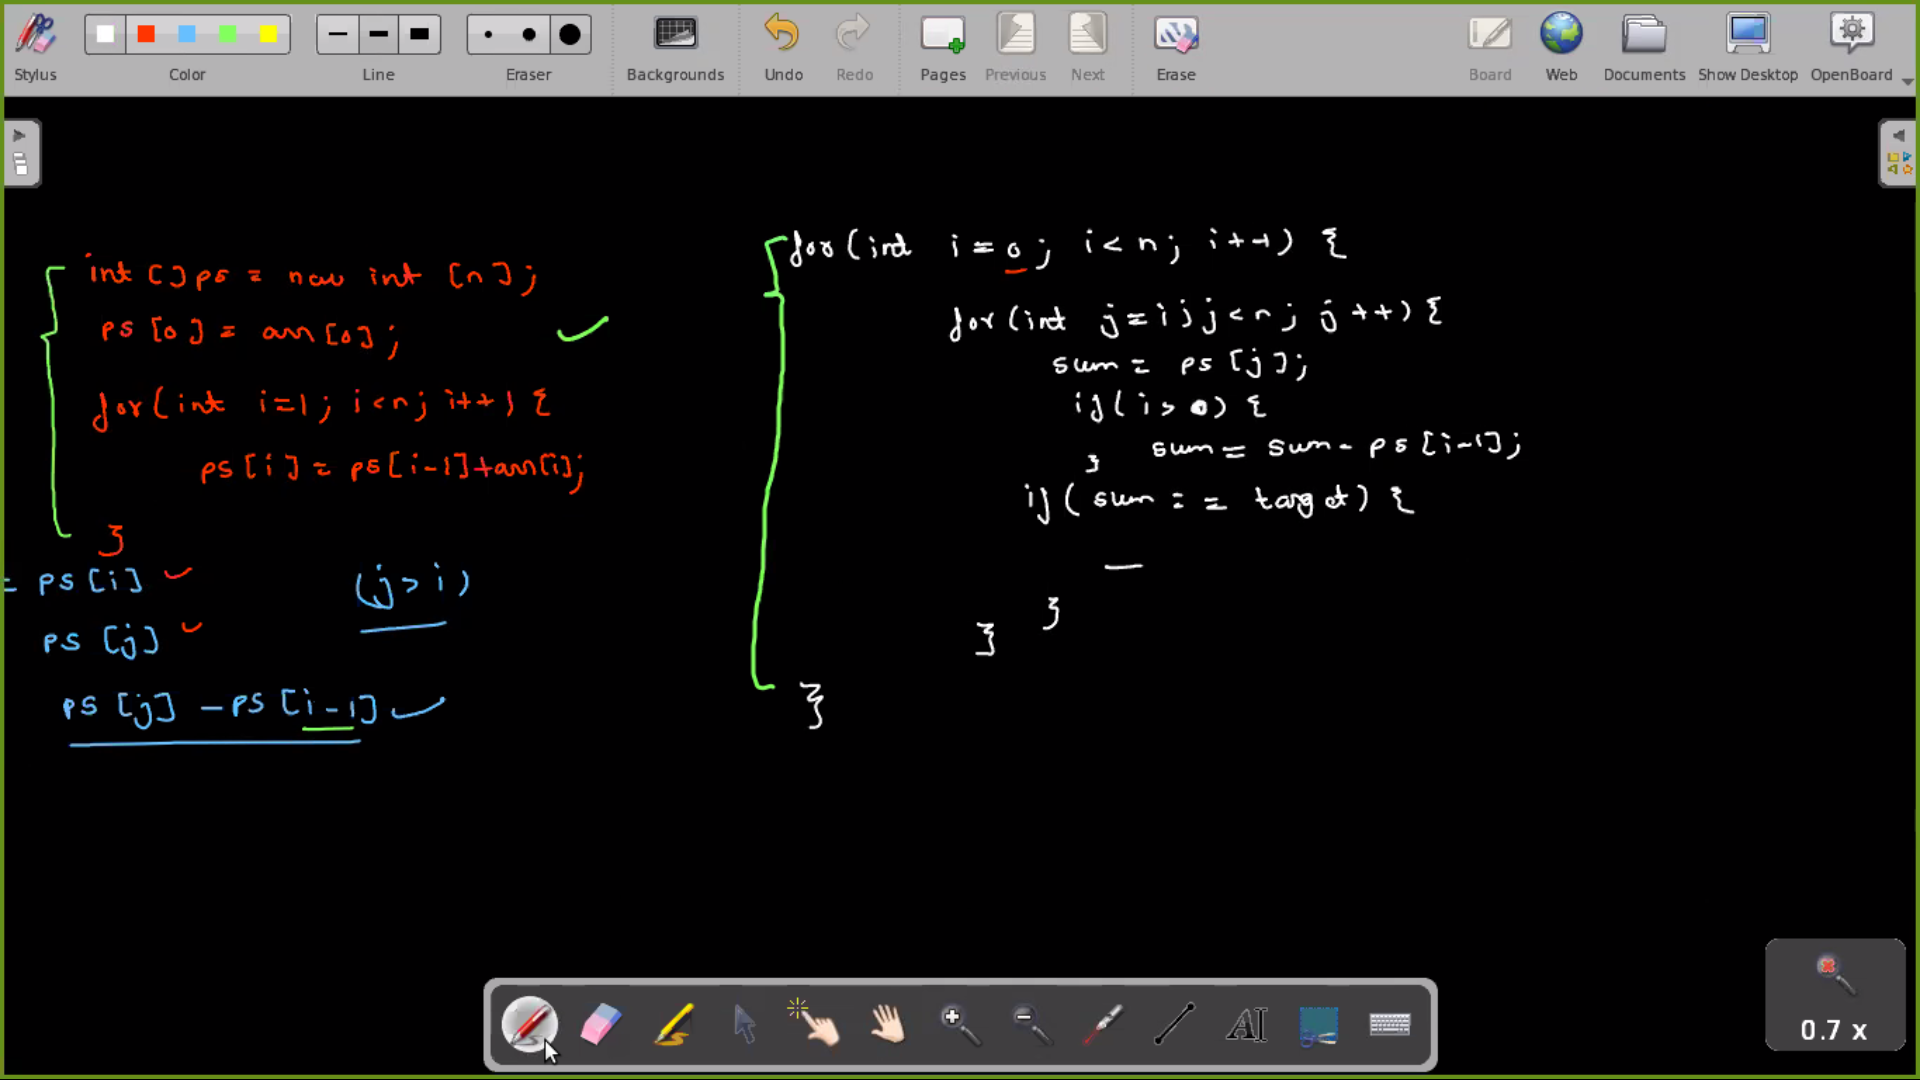 Stylus
Color
Line
Eraser
Backgrounds
Undo
Redo
Pages
Previous
Next
Erase
Board
Web
Documents
Show Desktop
OpenBoard
int []ps = new int [n];
ps [0] = arr[0];
for(int i=1; i<n; i++) {
ps[i] = ps[i-1]+arr[i];
}
= ps[i]
(j > i)
ps [j]
ps [j] - ps [i-1]
for(int i=0; i<n; i++) {
for(int j=i; j<n; j++) {
sum = ps[j];
if(i>0) {
sum = sum - ps[i-1];
}
if(sum == target) {
}
}
}
0.7 x